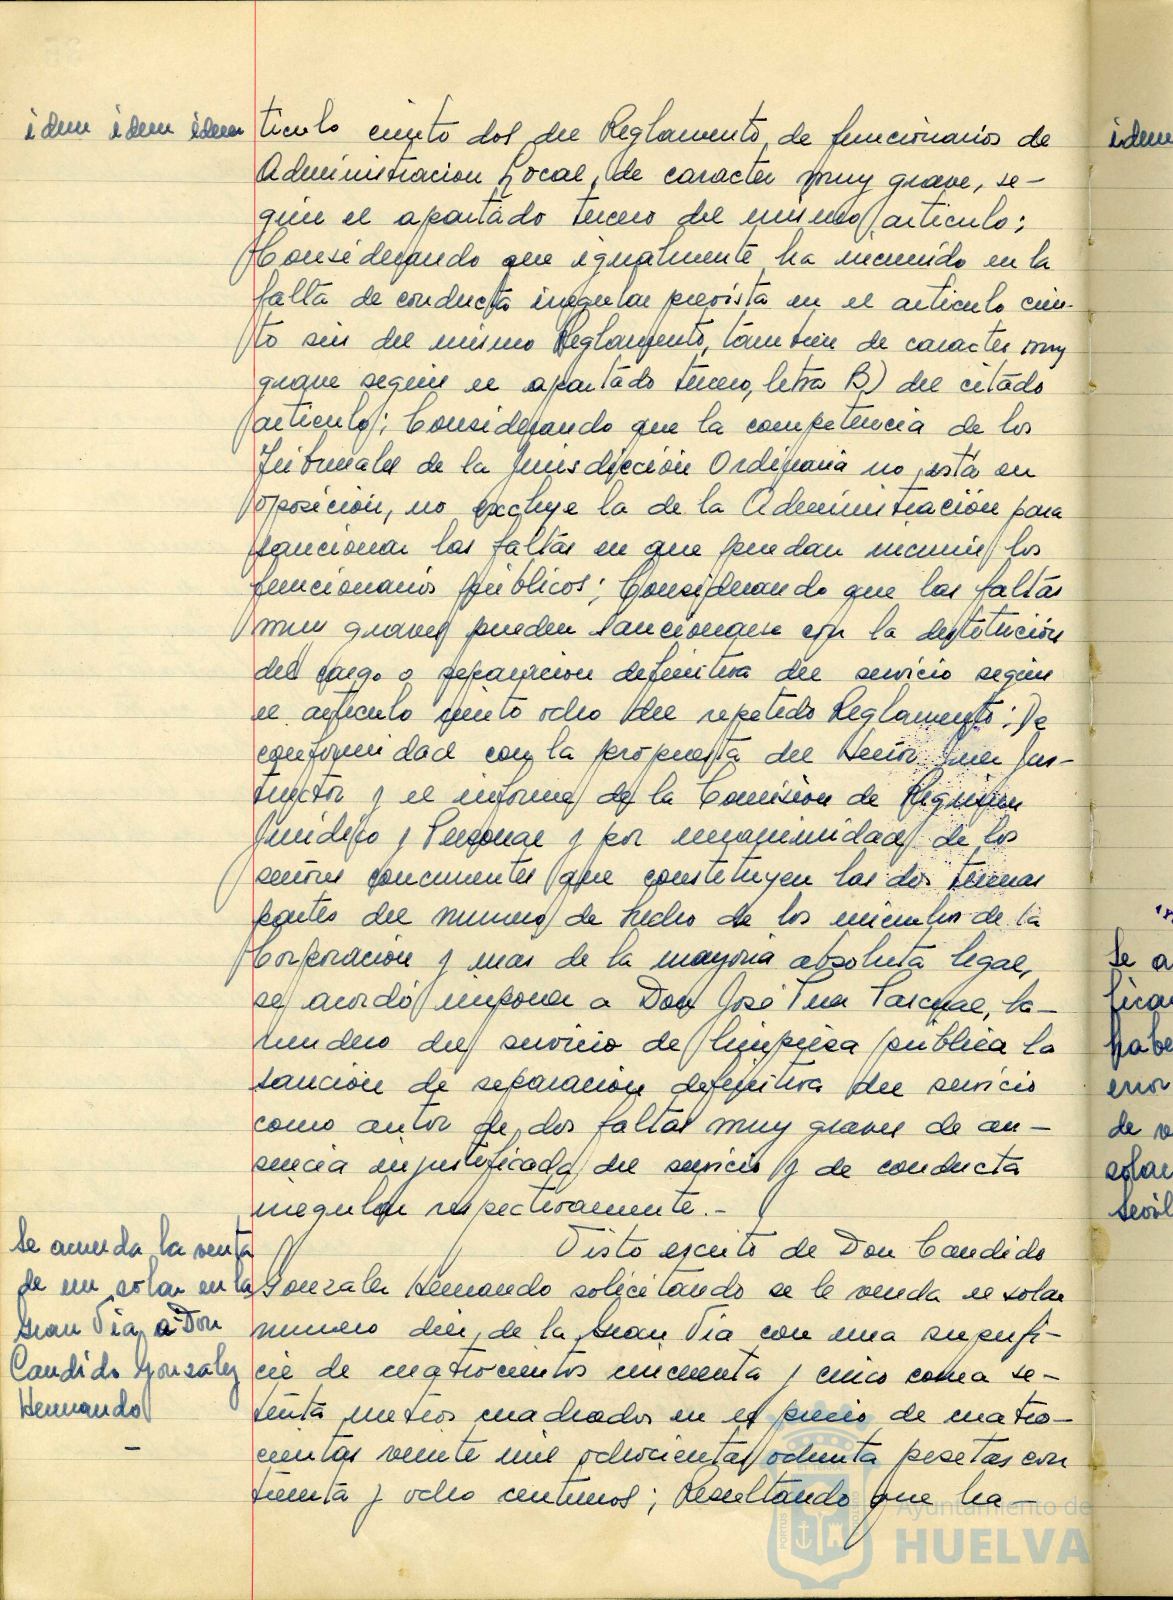 idem idem idem
ticulo ciento dos del Reglamento de funcionarios de
Administracion Local, de caracter muy grave, se-
gún el apartado tercero del mismo articulo;
Considerando que igualmente ha incurrido en la
falta de conducta irregular prevista en el articulo cien-
to seis del mismo Reglamento, tambien de caracter muy
grave según el apartado tercero, letra B) del citado
articulo; Considerando que la competencia de los
Tribunales de la Jurisdicción Ordinaria no está en
oposición, no excluye la de la Administración para
sancionar las faltas en que puedan incurrir los
funcionarios públicos; Considerando que las faltas
muy graves pueden sancionarse con la destitución
del cargo o separacion definitiva del servicio según
el articulo ciento ocho del repetido Reglamento; De
conformidad con la propuesta del Señor Juez Ins-
tructor y el informe de la Comisión de Régimen
Jurídico y Personal y por unanimidad de los
señores concurrentes que constituyen las dos terceras
partes del numero de hecho de los miembros de la
Corporación y mas de la mayoria absoluta legal,
se acordó imponer a Don José Pascual, ba-
rrendero del servicio de limpieza pública la
sanción de separación definitiva del servicio
como autor de dos faltas muy graves de au-
sencia injustificada del servicio y de conducta
irregular respectivamente.-
Se acuerda la venta
de un solar en la
Gran Via a Don
Candido Gonzalez
Hernando
Visto escrito de Don Candido
Gonzalez Hernando solicitando se le venda el solar
numero diez, de la Gran Via con una superfi-
cie de cuatrocientos cincuenta y cinco coma se-
tenta metros cuadrados en el precio de cuatro-
cientas veinte mil ochocientas ochenta pesetas con
treinta y ocho centimos; Resultando que ha-
idem
Se a
ficar
habe
error
de v
solar
Sevil
Ayuntamiento de
HUELVA